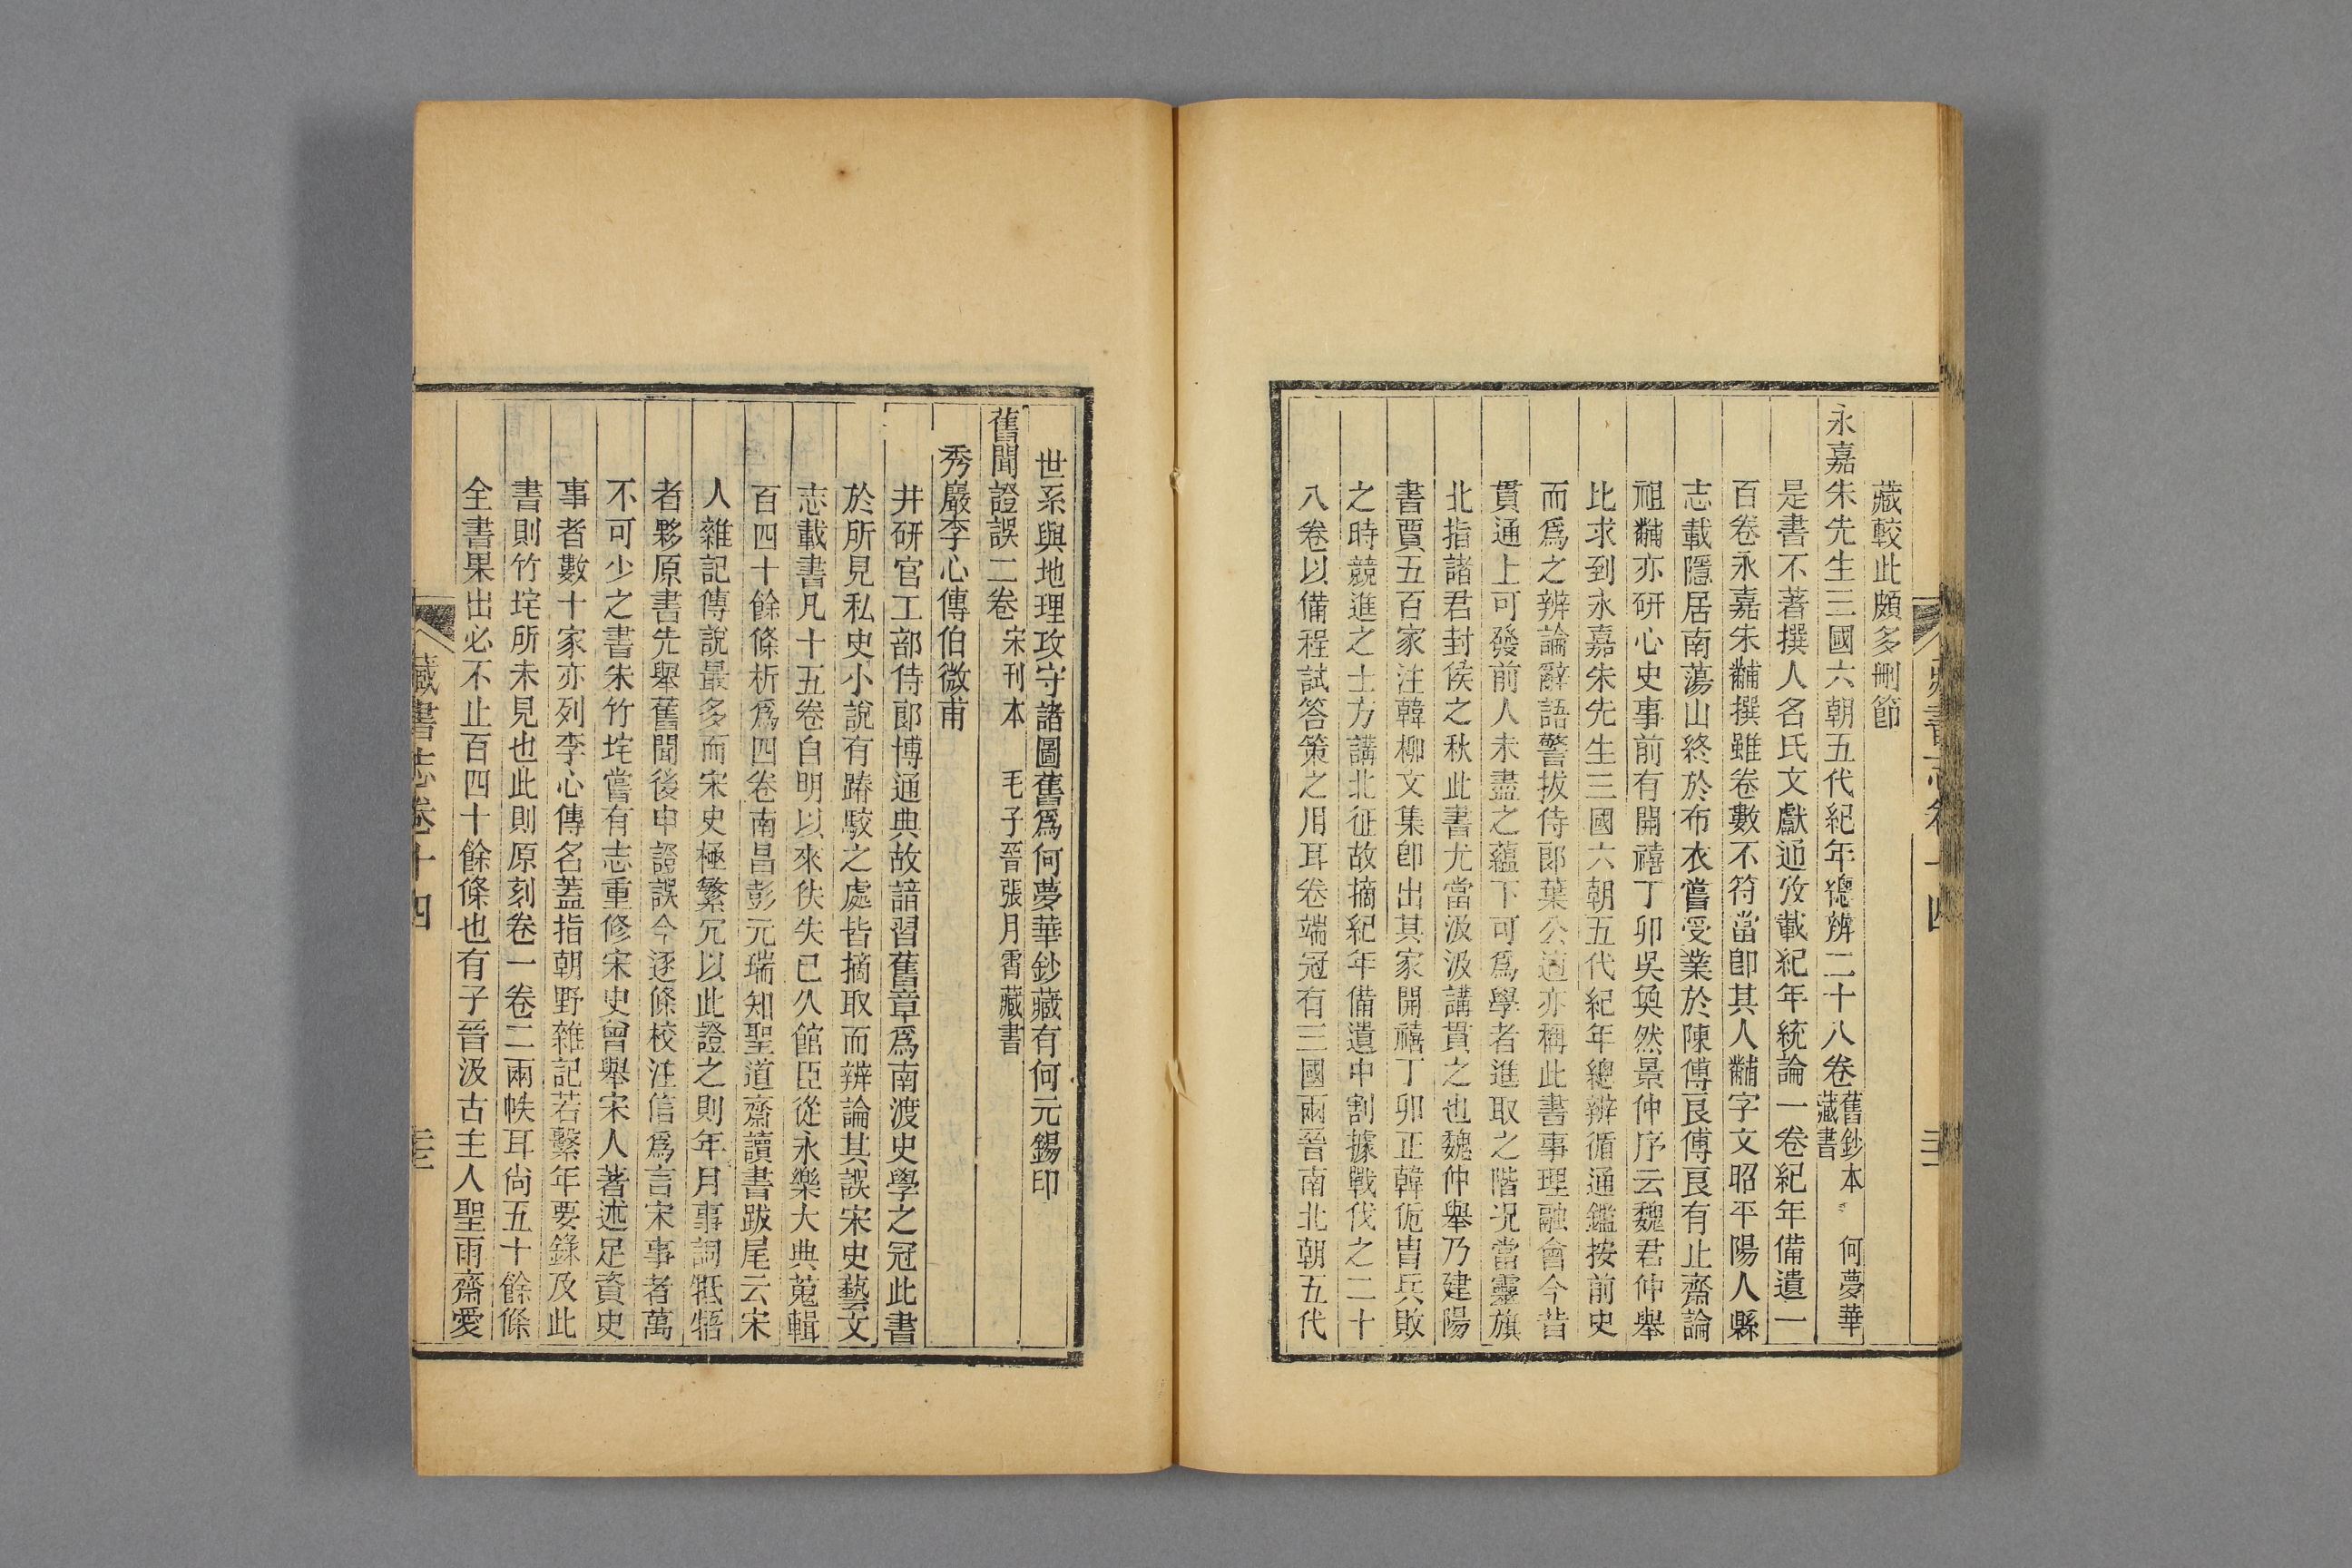 藏較此頗多刪節
永嘉朱先生三國六朝五代紀年總辨二十八卷 舊鈔本 何夢華藏書
是書不著撰人名氏文獻通攷載紀年統論一卷紀年備遺一
百卷永嘉朱黼撰雖卷數不符當卽其人黼字文昭平陽人縣
志載隱居南蕩山終於布衣嘗受業於陳傅良傅良有止齋論
祖黼亦研心史事前有開禧丁卯吳奐然景仲序云魏君仲舉
比求到永嘉朱先生三國六朝五代紀年總辨循通鑑按前史
而爲之辨論辭語警拔侍郎葉公適亦稱此書事理融會今昔
貫通上可發前人未盡之蘊下可爲學者進取之階況當靈旗
北指諸君封侯之秋此書尤當汲汲講貫之也魏仲舉乃建陽
書賈五百家注韓柳文集卽出其家開禧丁卯正韓侂胄兵敗
之時競進之士方講北征故摘紀年備遺中割據戰伐之二十
八卷以備程試答策之用耳卷端冠有三國兩晉南北朝五代
世系與地理攻守諸圖舊爲何夢華鈔藏有何元錫印
舊聞證誤二卷 宋刊本 毛子晉張月霄藏書
秀巖李心傳伯微甫
井研官工部侍郎博通典故諳習舊章爲南渡史學之冠此書
於所見私史小說有踳駮之處皆摘取而辨論其誤宋史藝文
志載書凡十五卷自明以來佚失已久館臣從永樂大典蒐輯
百四十餘條析爲四卷南昌彭元瑞知聖道齋讀書跋尾云宋
人雜記傳說最多而宋史極繁冗以此證之則年月事詞牴牾
者夥原書先舉舊聞後申證誤今逐條校注信爲言宋事者萬
不可少之書朱竹垞嘗有志重修宋史曾舉宋人著述足資史
事者數十家亦列李心傳名蓋指朝野雜記若繫年要錄及此
書則竹垞所未見也此則原刻卷一卷二兩帙耳尙五十餘條
全書果出必不止百四十餘條也有子晉汲古主人聖雨齋愛
藏書志卷十四